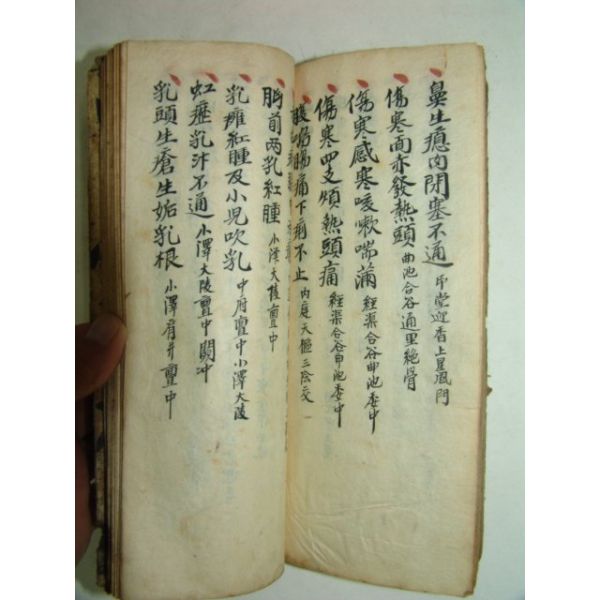 鼻生瘜肉閉塞不通 印堂迎香上星風門
傷寒面赤發熱頭 曲池合谷通里絶骨
傷寒感寒咳嗽喘滿 經渠合谷曲池委中
傷寒四支煩熱頭痛 經渠合谷曲池委中
腹鳴腸痛下痢不止 內庭天樞三陰交
胸前两乳紅腫 小澤大陵亶中
乳癰紅腫及小児吹乳 中府亶中小澤大陵
虹癧乳汁不通 小澤大陵亶中関冲
乳頭生瘡生妬乳根 小澤肩井亶中